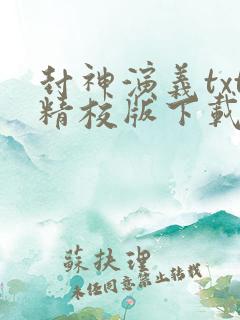 封神演義txt
精校版下載
蘇扶理
未任同意禁止转载